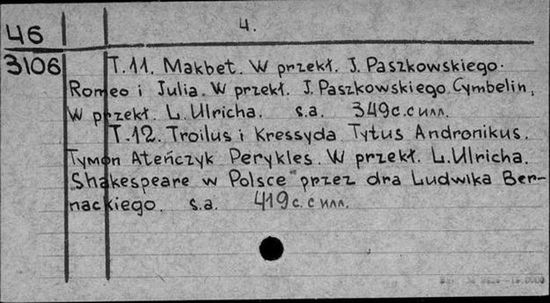 46
4.
3106
T.11. Makbet. W przekł. J. Paszkowskiego.
Romeo i Julia. W przekł. J. Paszkowskiego Cymbelin.
W przekł. L. Ulricha. s.a. 349 с. с илл.
T.12. Troilus i Kressyda Tytus Andronikus.
Tymon Ateńczyk Perykles. W przekł. L. Ulricha.
"Shakespeare w Polsce" przez dra Ludwika Ber-
nackiego. s.a. 419 с. с илл.